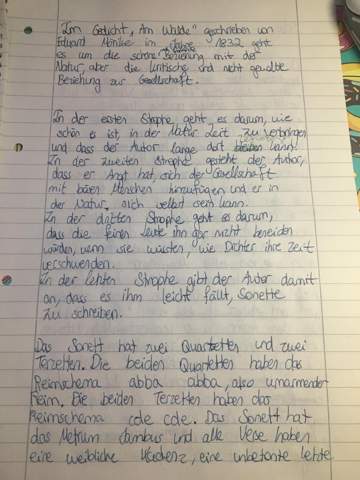 Im Gedicht „Am Walde" geschrieben von
Eduard Mörike im Jahre 1832 geht
es um die schöne Beziehung mit der
Natur, aber die kritische und nicht gewollte
Beziehung zur Gesellschaft.
In der ersten Strophe geht es darum, wie
schön es ist, in der Natur Zeit zu verbringen
und dass der Autor lange dort kann.
In der zweiten Strophe gesteht der Autor,
dass er Angst hat sich der Gesellschaft
mit bösen Menschen hinzufügen und er in
der Natur, sich selbst sein kann.
In der dritten Strophe geht es darum,
dass die feinen Leute ihn gar nicht beneiden
würden, wenn sie wüssten, wie Dichter ihre Zeit
verschwenden.
In der letzten Strophe gibt der Autor damit
an, dass es ihm leicht fällt, Sonette
zu schreiben.
Das Sonett hat zwei Quartetten und zwei
Terzetten. Die beiden Quartetten haben das
Reimschema abba abba, also umarmender
Reim. Die beiden Terzetten haben das
Reimschema cde cde. Das Sonett hat
das Metrum Jambus und alle Verse haben
eine weibliche Kadenz, eine unbetonte letzte